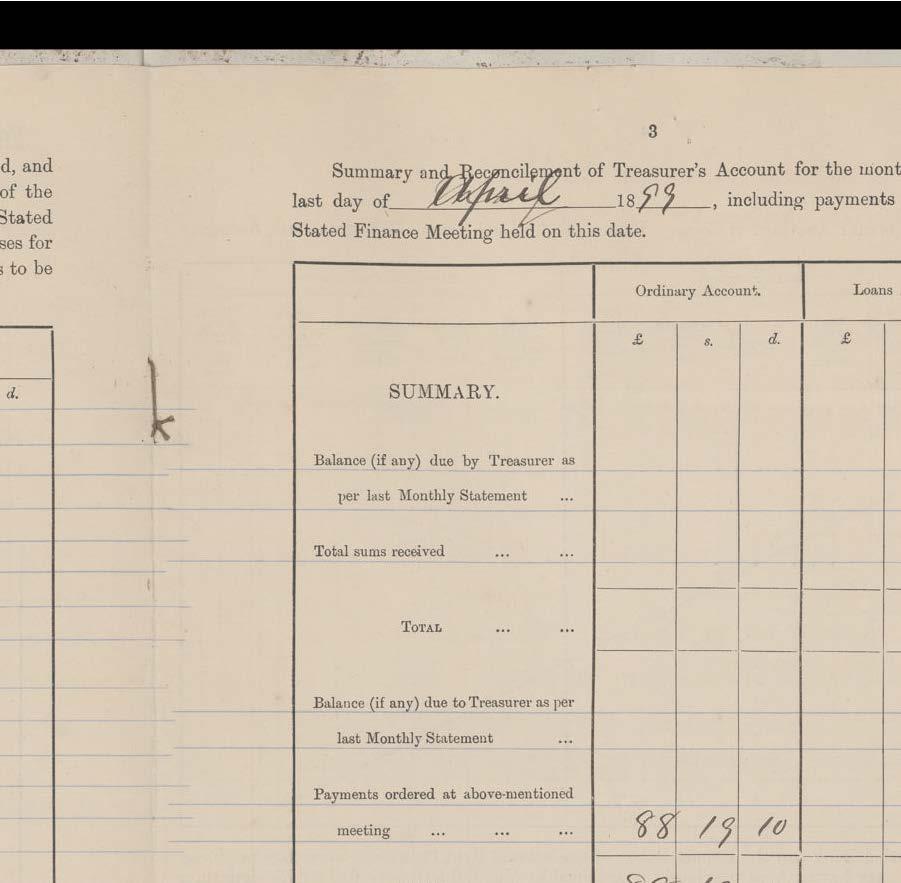 d, and
of the
Stated
ses for
s to be
d.
3
Summary and Reconcilement of Treasurer's Account for the mont
last day of April 1899, including payments
Stated Finance Meeting held on this date.
Ordinary Account. Loans
£ s. d. £
SUMMARY.
Balance (if any) due by Treasurer as
per last Monthly Statement ...
Total sums received ... ...
TOTAL ... ...
Balance (if any) due to Treasurer as per
last Monthly Statement ...
Payments ordered at above-mentioned
meeting ... ... ... 88 19 10